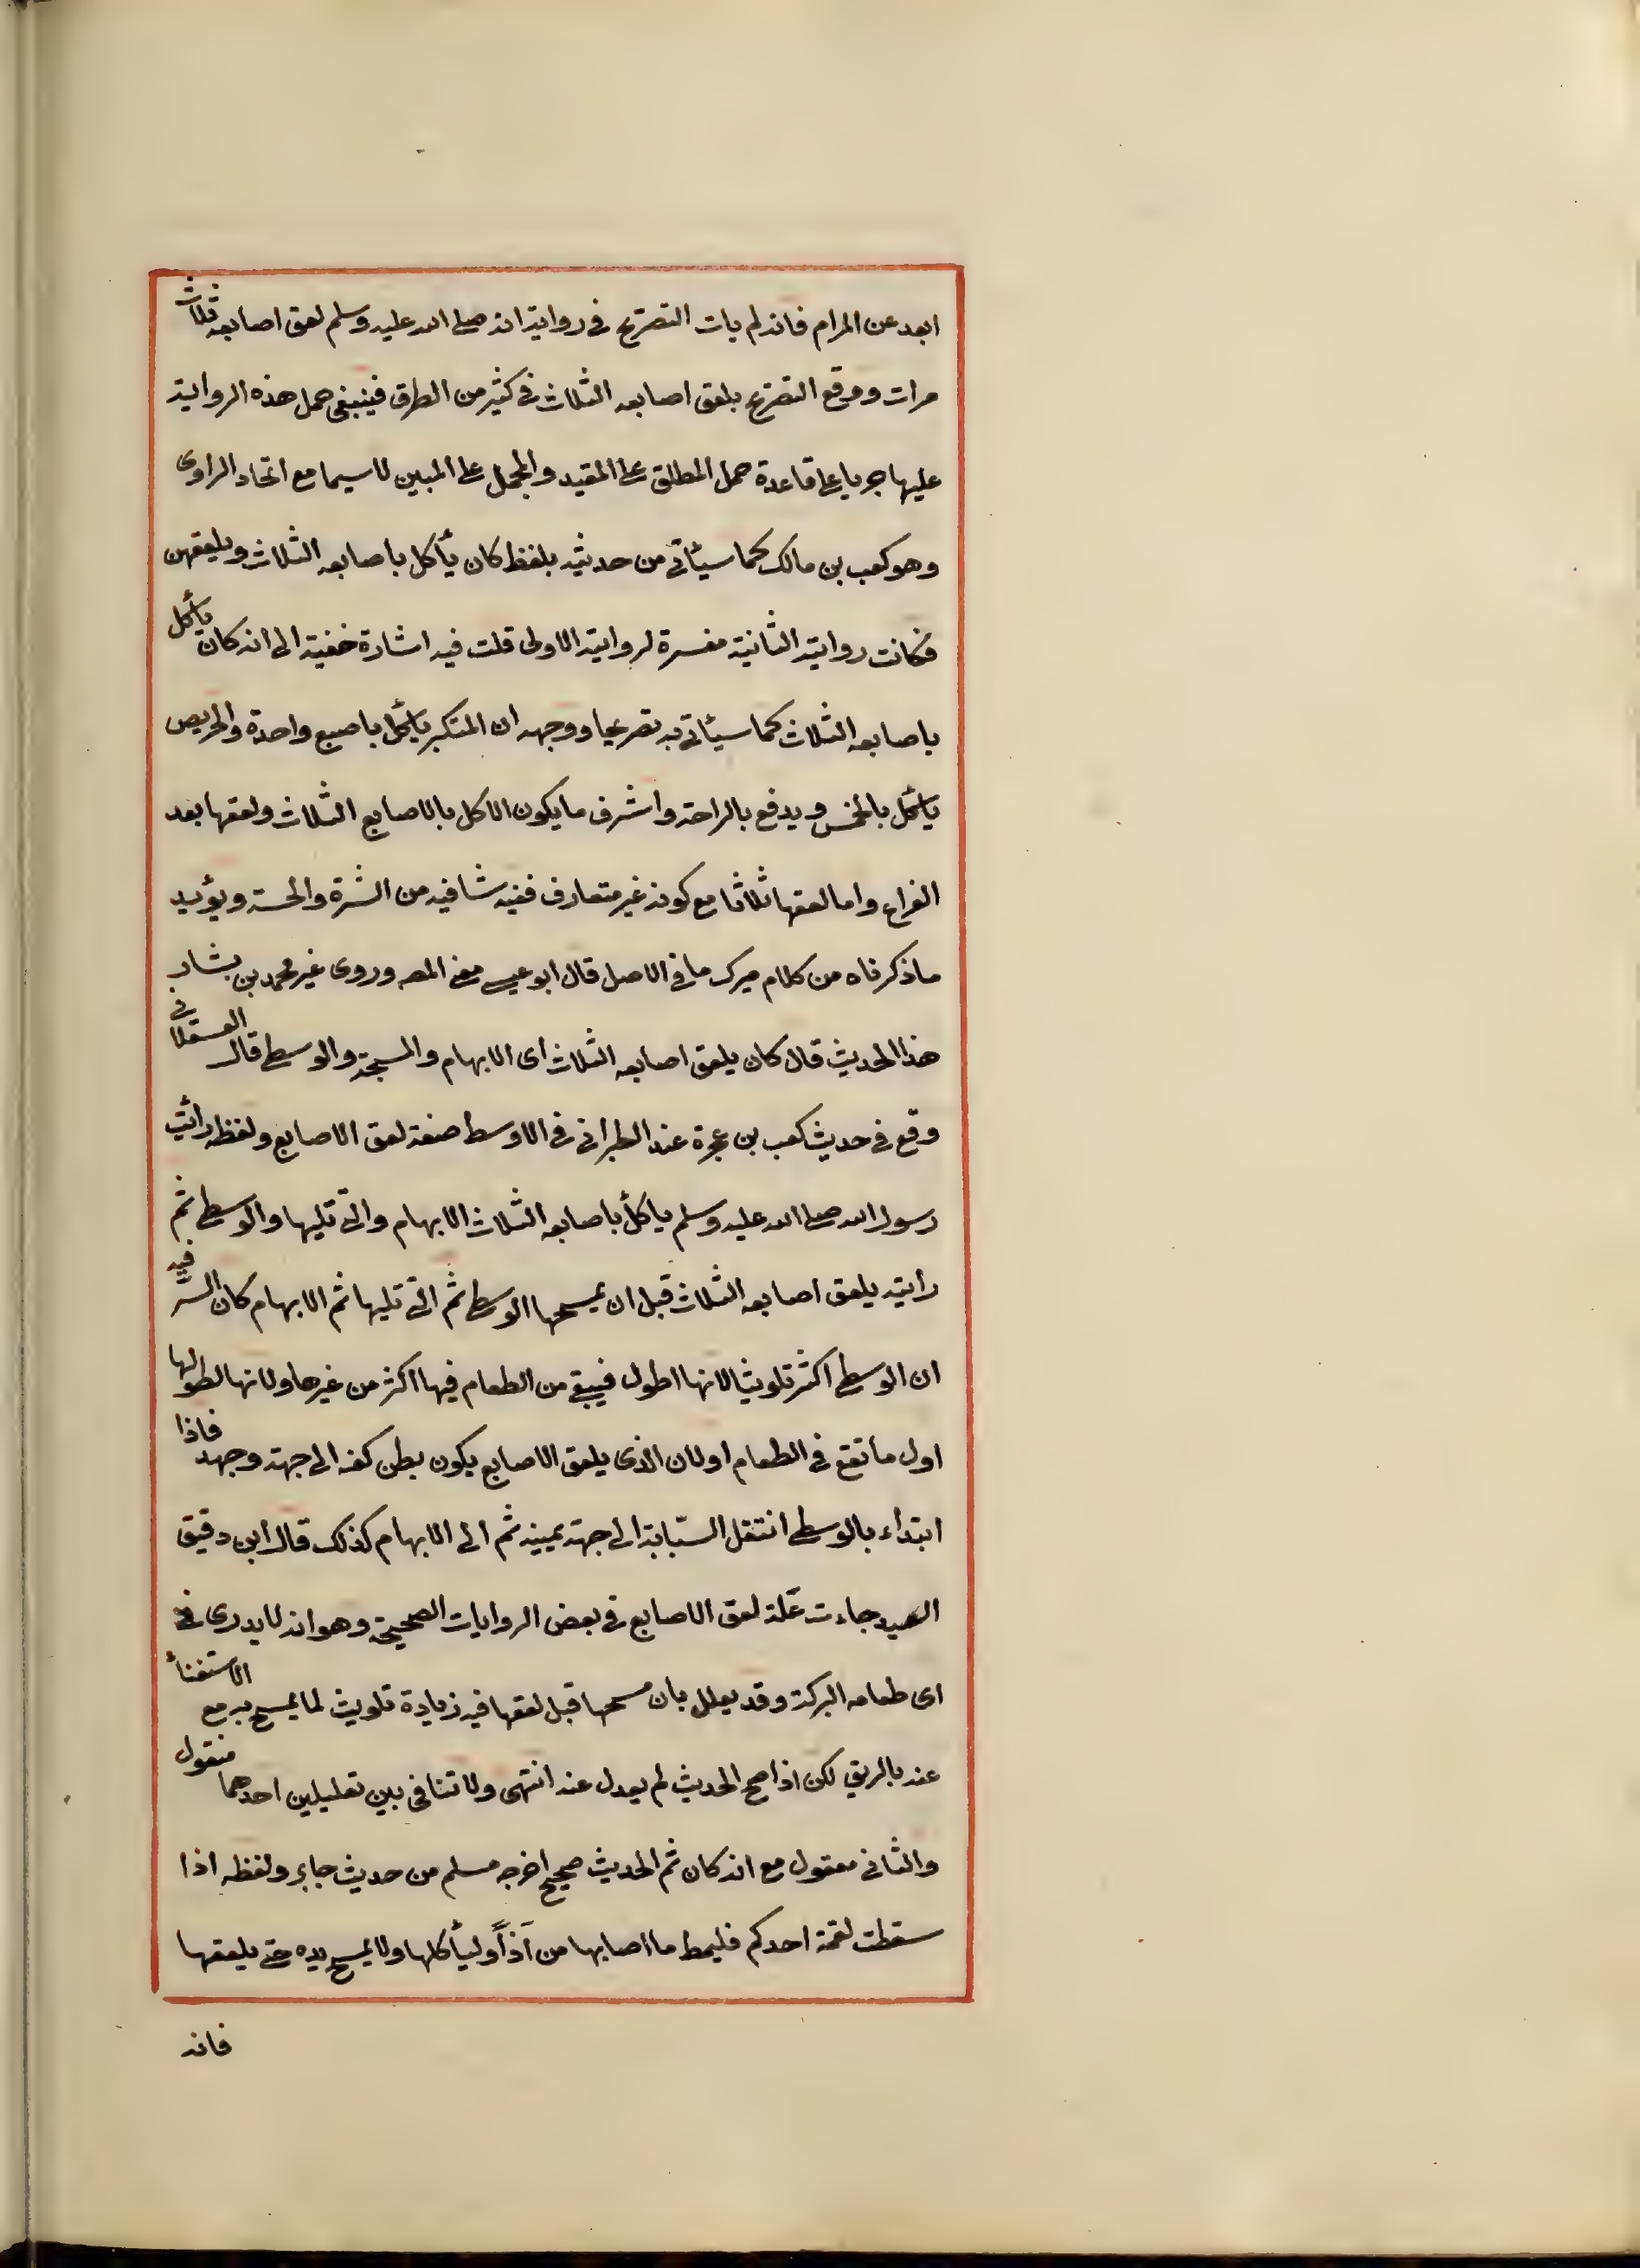 ابعد عن المرام فانه لم يات التصريح فى رواية انه صلى الله عليه وسلم لعق اصابعه ثلاث
مرات ووقع التصريح بلعق اصابعه الثلاث فى كثير من الطرق فينبغى حمل هذه الرواية
عليها جريا على قاعدة حمل المطلق على المقيد والمجمل على المبين لا سيما مع اتحاد الراوى
وهو كعب بن مالك كما سيأتى من حديثه بلفظ كان يأكل باصابعه الثلاث ويلعقهن
فكانت رواية الثانية مفسرة لرواية الاولى قلت فيه اشارة خفية الى انه كان يأكل
باصابعه الثلاث كما سيأتى به تصريحا ووجهه ان المتكبر يأكل باصبع واحدة والحريص
يأكل بالخمس ويدفع بالراحة واشرف ما يكون الاكل بالاصابع الثلاث ولعقها بعد
الفراغ واما لعقها ثلاثا مع كونه غير متعارف ففيه شافيه من الشرة والخسة ويؤيد
ماذكرناه من كلام ميرك ما فى الاصل قال ابو عيسى معنى المصـ وروى غير محمد بن بشار
هذا الحديث قال كان يلعق اصابعه الثلاث اى الابهام والمسبحة والوسطى قال العسقلانى
وقع فى حديث كعب بن عجرة عند الطبرانى فى الاوسط صفة لعق الاصابع ولفظه رأيت
رسول الله صلى الله عليه وسلم يأكل باصابعه الثلاث الابهام والتى تليها والوسطى ثم
رأيته يلعق اصابعه الثلاث قبل ان يمسحها الوسطى ثم التى تليها ثم الابهام كان السر فيه
ان الوسطى اكثر تلويثا لانها اطول فيبقى من الطعام فيها اكثر من غيرها ولانها لطولها
اول ما تقع فى الطعام اولان الذى يلعق الاصابع يكون بطن كفه الى جهة وجهه فاذا
ابتداء بالوسطى انتقل السبابة الى جهة يمينه ثم الى الابهام كذلك قال ابن دقيق
العيد جاءت علة لعق الاصابع فى بعض الروايات الصحيحة وهو انه لا يدرى فى
اى طعامه البركة وقد يعلل بان مسحها قبل لعقها فيه زيادة تلويث لما يمسح به مع الاستغنأ
عنه بالريق لكن اذا صح الحديث لم يعدل عنه انتهى ولا تنافى بين تعليلين احدهما منقول
والثانى معقول مع انه كان ثم الحديث صحيح اخرجه مسلم من حديث جابر ولفظه اذا
سقطت لقمة احدكم فليمط ما اصابها من أذاً وليأكلها ولا يمسح يده حتى يلعقها
فانه